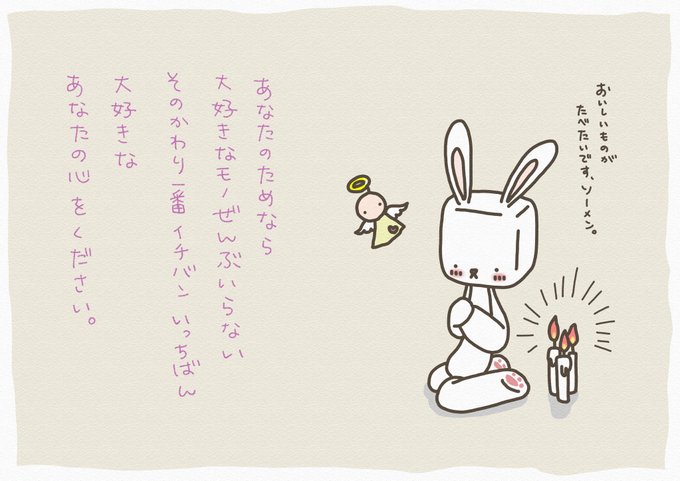 おいしいものが
たべたいです、ソーメン。
あなたのためなら
大好きなモノぜんぶいらない
そのかわり一番イチバンいっちばん
大好きな
あなたの心をください。